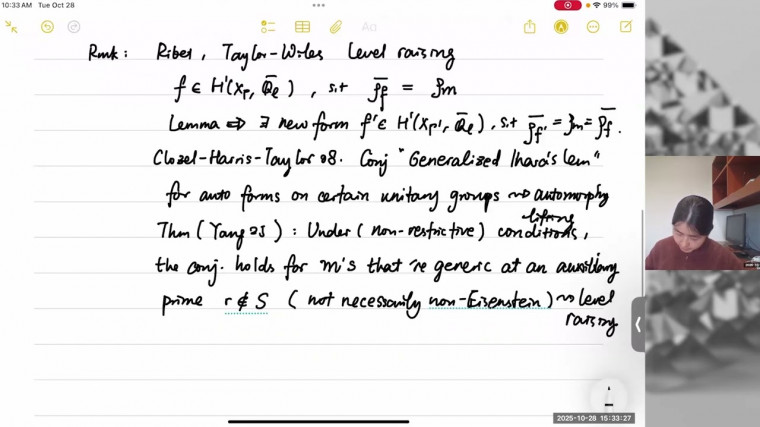 10:33 AM Tue Oct 28
99%
Aa
Rmk: Ribet, Taylor-Wiles Level raising
f ∈ H¹(X_Γ, Q̄_ℓ), s.t ρ̄_f = ρ_m
Lemma ⇒ ∃ new form f' ∈ H¹(X_Γ', Q̄_ℓ), s.t ρ̄_f' = ρ_m = ρ̄_f.
Clozel-Harris-Taylor 08. Conj "Generalized Ihara's lem"
for auto forms on certain unitary groups ⇝ automorphy
lifting
Thm (Yang 25): Under (non-restrictive) conditions,
the conj. holds for m's that're generic at an auxiliary
prime r ∉ S (not necessarily non-Eisenstein) ⇝ level
raising
2025-10-28 15:33:27